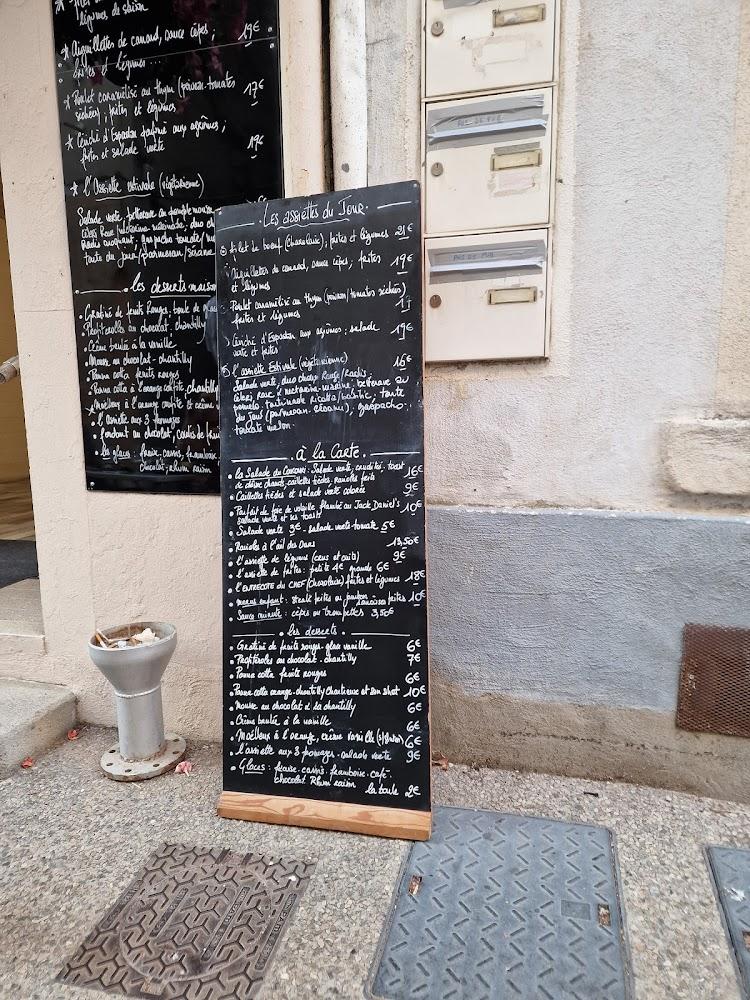 légumes de saison
* Aiguillettes de canard, sauce cèpes, 19€
frites et légumes...
* Poulet caramélisé au thym (poivron-tomates 17€
séchées), frites et légumes
* Ceviché d'Espadon aux agrumes ; 19€
frites et salade verte
* l'Assiette estivale (végétarienne)
Salade verte, betterave au pomelo
tarte du jour/parmesan/sésame
. les desserts maison
• Gratiné de fruits Rouges. boule de
• Profiteroles au chocolat. chantilly
• Crème brulée à la vanille
• Mousse au chocolat - chantilly
• Panna cotta fruits rouges
• Panna cotta à l'orange confite. chantilly
• Moëlleux à l'orange confite et crème
• l'assiette aux 3 fromages
• fondant au chocolat, coulis de
• les glaces: fraise. cassis, framboise.
chocolat. Rhum raisin
. Les assiettes du Jour.
Filet de boeuf (charolaise), frites et légumes 21€
Aiguillettes de canard, sauce cèpes, frites 19€
et légumes
Poulet caramélisé au thym (poivron/tomates séchées)
frites et légumes
Ceviché d'Espadon aux agrumes; salade 19€
verte et frites
l'assiette Estivale (végétarienne) 16€
Salade verte, duo choux Rouge/Radis,
céleri rave, betterave au
pomelo, ricotta/, tarte
du Jour (parmesan. sésame), gaspacho:
tomate melon.
. à la Carte .
• la Salade du: Salade verte, crudités, toast 16€
de chèvre chaud, caillettes tièdes, ravioles frits
• Caillettes tièdes et salade verte colorée 9€
• Parfait de foie de volaille flambé au Jack Daniel's 10€
salade verte et ses toasts
• Salade verte 3€ - salade verte-tomate 5€
• Ravioles à l'ail des Ours 13,50€
• l'assiette de légumes (crus et cuits) 9€
• l'assiette de frites: petite 4€ grande 6€
• l'ENTRECOTE DU CHEF (charolaise) frites et légumes 18€
• menu enfant: steak frites ou jambon frites 10€
• Sauce minute: cèpes ou trompettes 3,50€
. les desserts .
• Gratiné de fruits rouges. glace vanille 6€
• Profiteroles au chocolat. chantilly 7€
• Panna cotta fruits rouges 6€
• Panna cotta orange. chantilly Chartreuse et son shot 10€
• Mousse au chocolat & sa chantilly 6€
• Crème brulée à la vanille 6€
• Moëlleux à l'orange, crème vanille 6€
• l'assiette aux 3 fromages. salade verte 9€
• Glaces: fraise. cassis. framboise. café.
chocolat Rhum raisin
la boule 2€
PAS DE PUB
PAS DE PUB